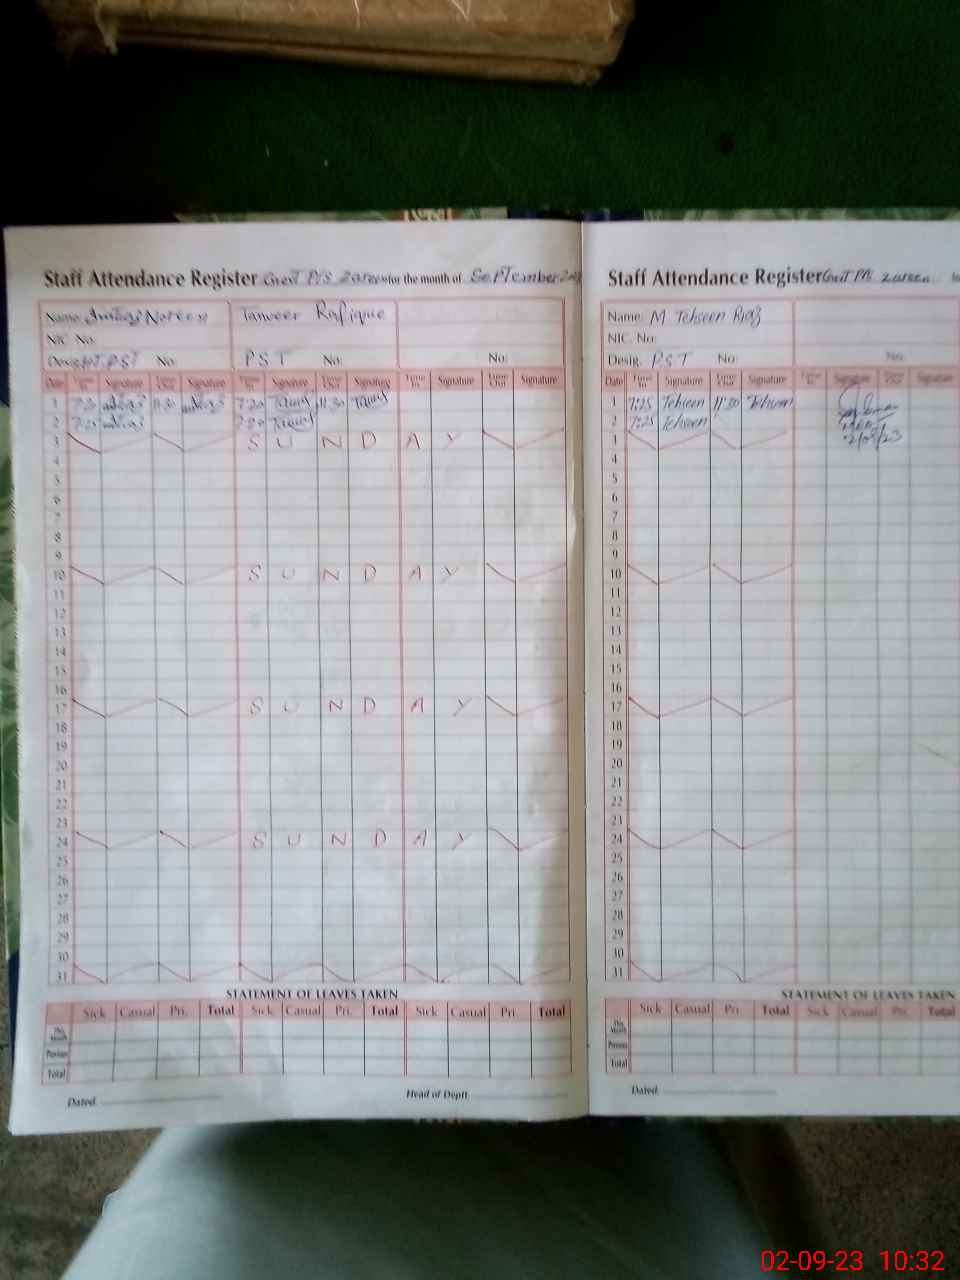 Staff Attendance Register Govt P/S Zareen for the month of September
Name: Imtiaz Noreen Tanveer Rafique
NIC. No:
Desig. PST No: PST No: No:
Date Time In Signature Time Out Signature Time In Signature Time Out Signature Time In Signature Time Out Signature
1 7:20 11:30 7:20 11:30
2 7:25 7:20
3 S U N D A Y
4
5
6
7
8
9
10 S U N D A Y
11
12
13
14
15
16
17 S U N D A Y
18
19
20
21
22
23
24 S U N D A Y
25
26
27
28
29
30
31
STATEMENT OF LEAVES TAKEN
Sick Casual Pri. Total Sick Casual Pri. Total Sick Casual Pri. Total
This Month
Previous
Total
Dated Head of Deptt
Staff Attendance Register Govt P/S Zareen
Name: M Tehseen Riaz
NIC. No:
Desig. PST No: No:
Date Time In Signature Time Out Signature Time In Signature Time Out Signature
1 7:25 Tehseen 11:30 Tehseen
2 7:25 Tehseen
3
4
5
6
7
8
9
10
11
12
13
14
15
16
17
18
19
20
21
22
23
24
25
26
27
28
29
30
31
STATEMENT OF LEAVES TAKEN
Sick Casual Pri. Total Sick Casual Pri. Total
This Month
Previous
Total
Dated
02-09-23 10:32